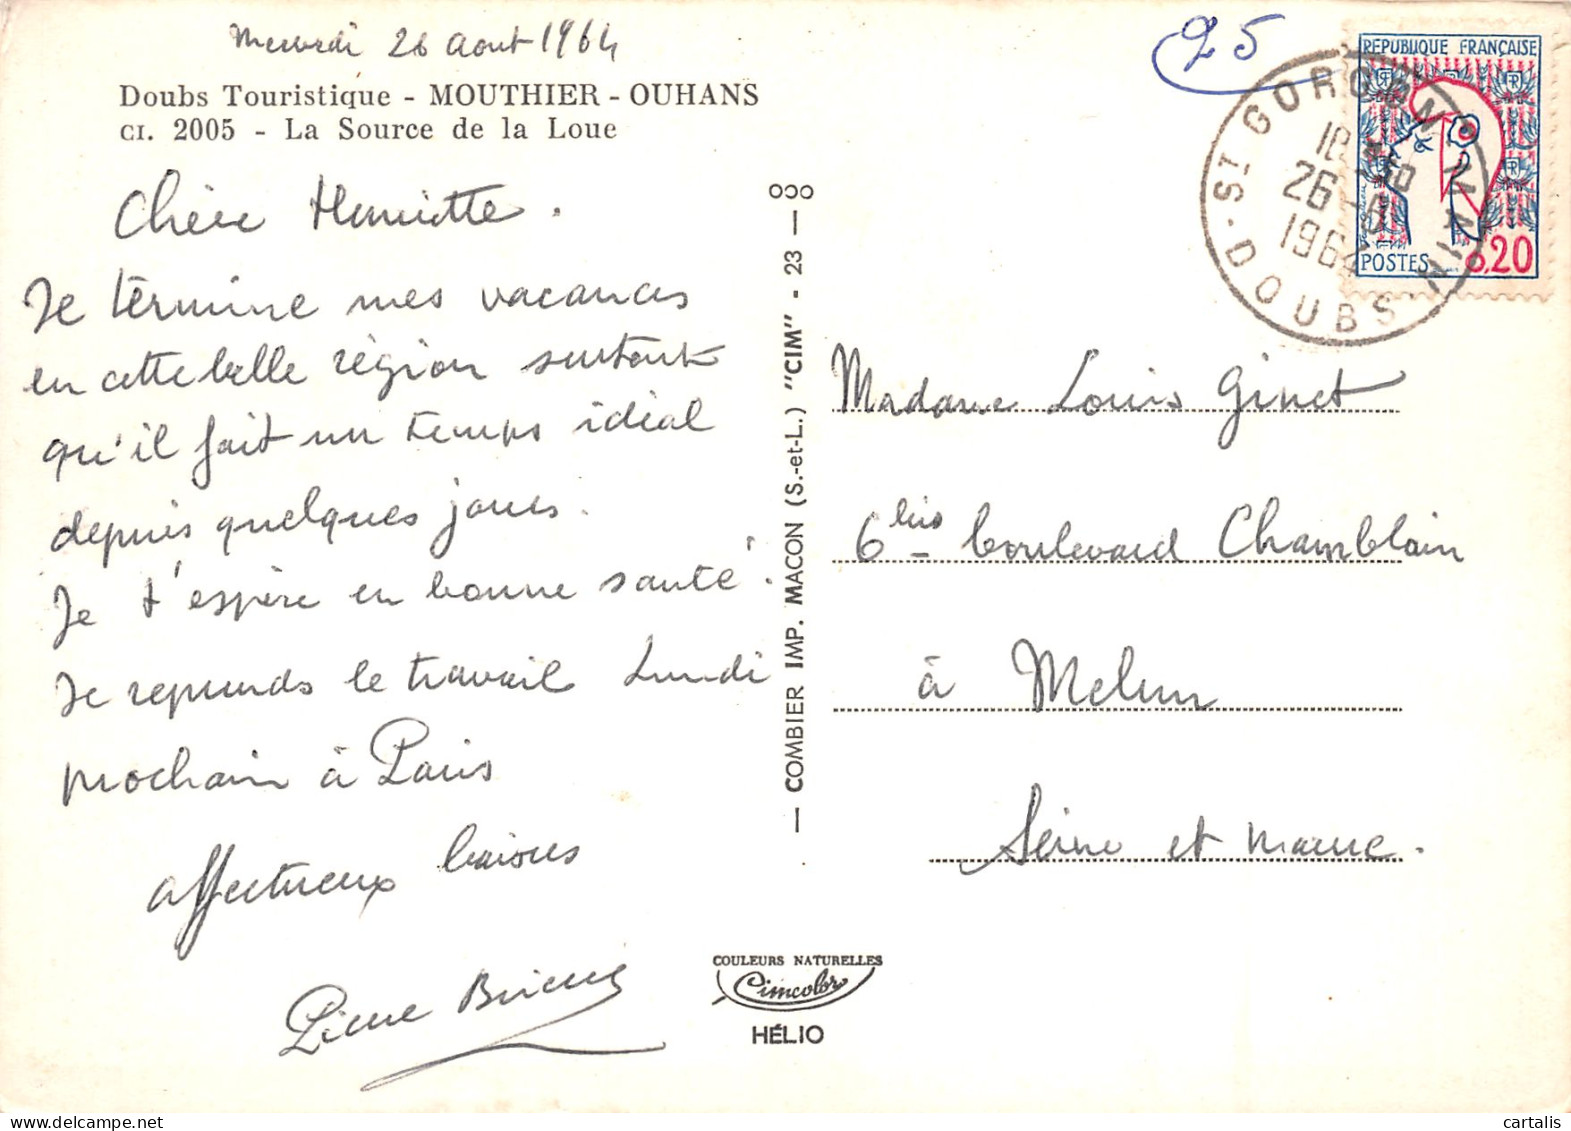 Mercredi 26 Aout 1964
Doubs Touristique - MOUTHIER - OUHANS
CI. 2005 - La Source de la Loue
Chère Henriette.
Je termine mes vacances
en cette belle région surtout
qu'il fait un temps idéal
depuis quelques jours.
Je t'espère en bonne santé.
Je reprends le travail Lundi
prochain à Paris
affectueux baisers
Pierre
COMBIER IMP. MACON (S.-et-L.) "CIM" - 23
COULEURS NATURELLES
Cimcolor
HÉLIO
25
REPUBLIQUE FRANÇAISE
POSTES 0,20
ST GORGON MAIN
18
26 -8
1964
DOUBS
Madame Louis Ginet
6 bis boulevard Chamblain
à Melun
Seine et Marne.
cartalis